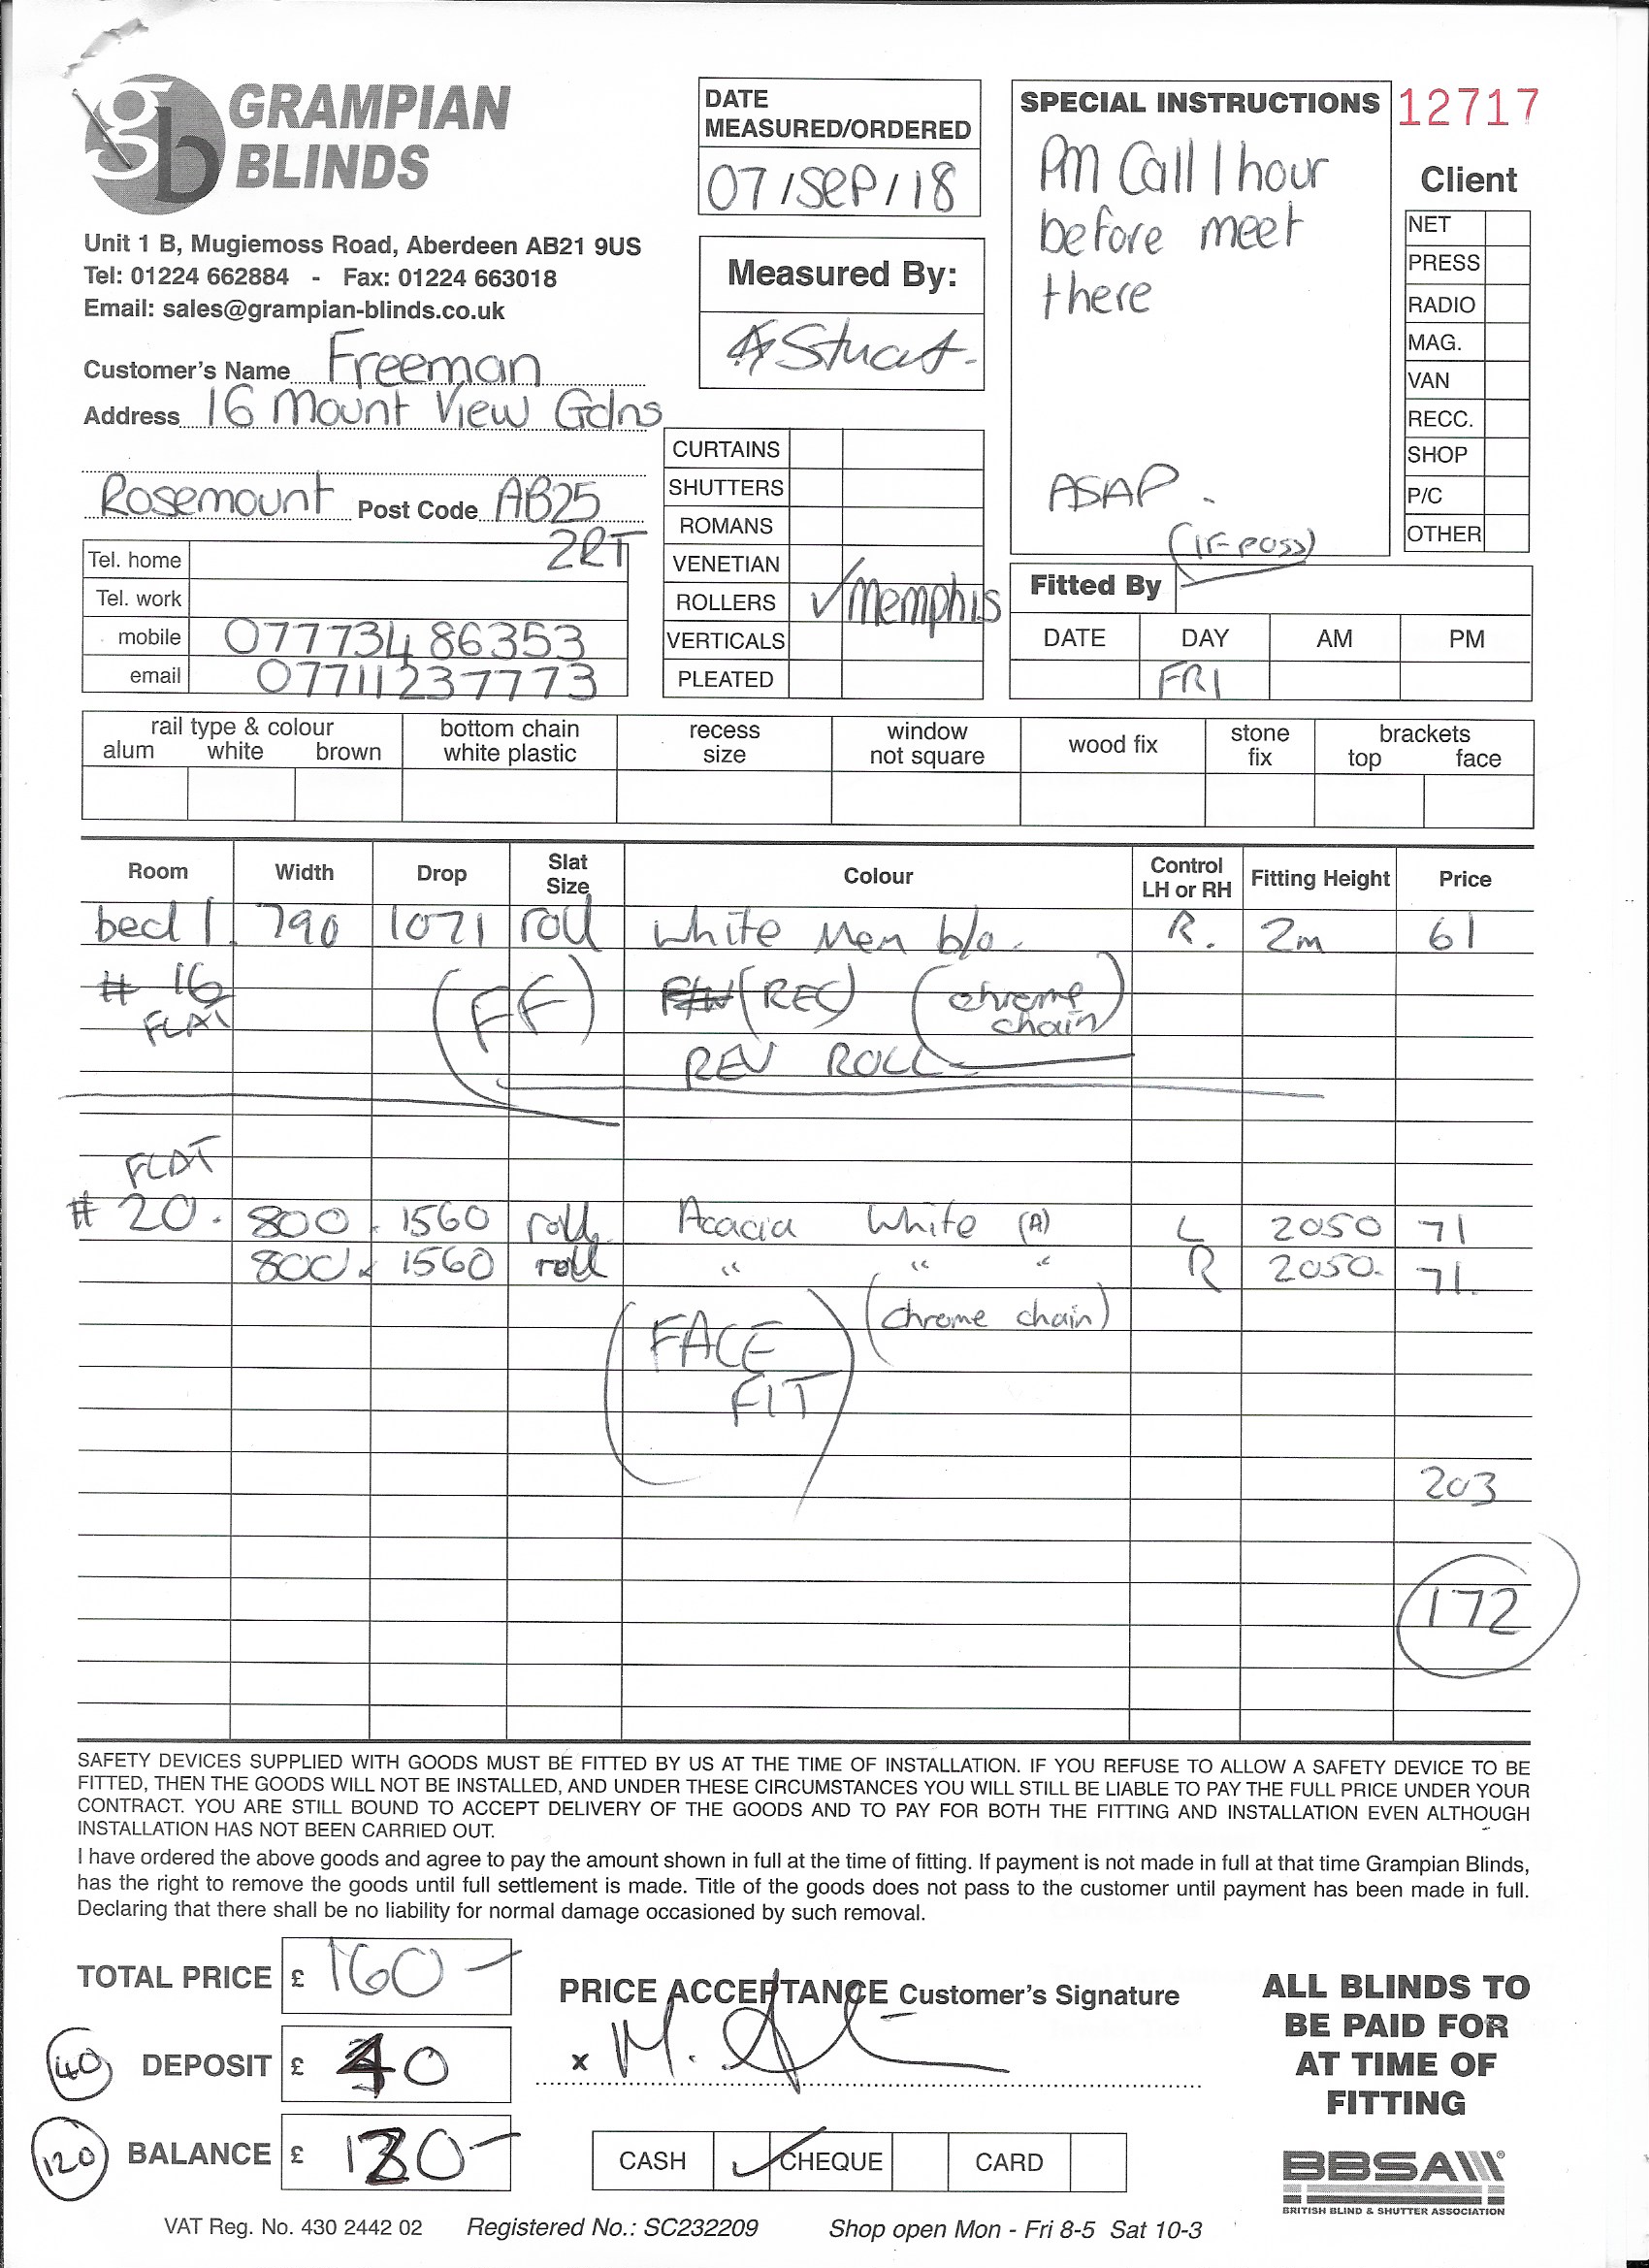 GRAMPIAN
BLINDS
Unit 1 B, Mugiemoss Road, Aberdeen AB21 9US
Tel: 01224 662884 - Fax: 01224 663018
Email: sales@grampian-blinds.co.uk
Customer's Name Freeman
Address 16 Mount View Gdns
Rosemount Post Code AB25
2RT
Tel. home
Tel. work
mobile 07773486353
email 07711237773
DATE
MEASURED/ORDERED
07/SEP/18
Measured By:
A Stuart.
CURTAINS
SHUTTERS
ROMANS
VENETIAN
ROLLERS ✓ Memphis
VERTICALS
PLEATED
SPECIAL INSTRUCTIONS
PM Call 1 hour
before meet
there
ASAP.
(IF poss)
12717
Client
NET
PRESS
RADIO
MAG.
VAN
RECC.
SHOP
P/C
OTHER
Fitted By
DATE DAY AM PM
FRI
rail type & colour bottom chain recess window wood fix stone brackets
alum white brown white plastic size not square fix top face
Room Width Drop Slat Size Colour Control LH or RH Fitting Height Price
bed 1. 790 1071 roll White Mem b/o. R. 2m 61
# 16 (FF) (REC) (chrome
FLAT chain)
REV ROLL
FLAT
# 20. 800. 1560 roll Acacia White (A) L 2050 71
800 x 1560 roll " " " R 2050. 71.
(chrome chain)
(FACE
FIT)
203
172
SAFETY DEVICES SUPPLIED WITH GOODS MUST BE FITTED BY US AT THE TIME OF INSTALLATION. IF YOU REFUSE TO ALLOW A SAFETY DEVICE TO BE
FITTED, THEN THE GOODS WILL NOT BE INSTALLED, AND UNDER THESE CIRCUMSTANCES YOU WILL STILL BE LIABLE TO PAY THE FULL PRICE UNDER YOUR
CONTRACT. YOU ARE STILL BOUND TO ACCEPT DELIVERY OF THE GOODS AND TO PAY FOR BOTH THE FITTING AND INSTALLATION EVEN ALTHOUGH
INSTALLATION HAS NOT BEEN CARRIED OUT.
I have ordered the above goods and agree to pay the amount shown in full at the time of fitting. If payment is not made in full at that time Grampian Blinds,
has the right to remove the goods until full settlement is made. Title of the goods does not pass to the customer until payment has been made in full.
Declaring that there shall be no liability for normal damage occasioned by such removal.
TOTAL PRICE £ 160-
40 DEPOSIT £ 40
120 BALANCE £ 120-
PRICE ACCEPTANCE Customer's Signature
x M.
CASH ✓ CHEQUE CARD
ALL BLINDS TO
BE PAID FOR
AT TIME OF
FITTING
BBSA
BRITISH BLIND & SHUTTER ASSOCIATION
VAT Reg. No. 430 2442 02 Registered No.: SC232209 Shop open Mon - Fri 8-5 Sat 10-3